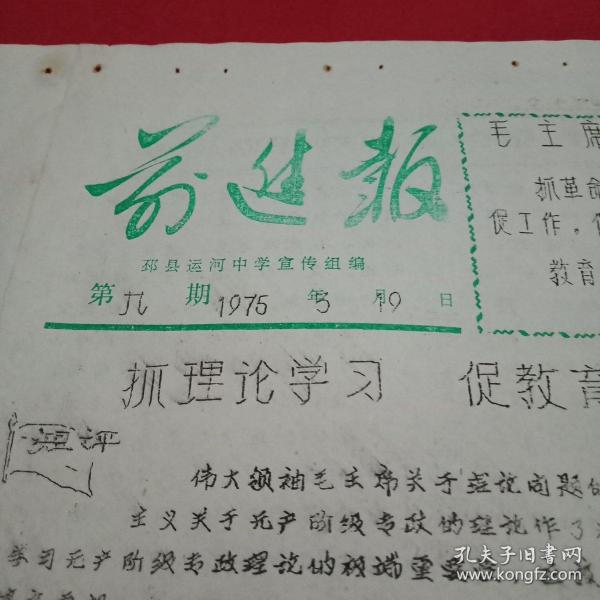 前进报
邳县运河中学宣传组编
第九期 1975年3月19日
毛主席
抓革命
促工作，
教育
抓理论学习 促教育
短评
伟大领袖毛主席关于理论问题的
主义关于无产阶级专政的理论作了
学习无产阶级专政理论的极端重要
孔夫子旧书网
www.kongfz.com